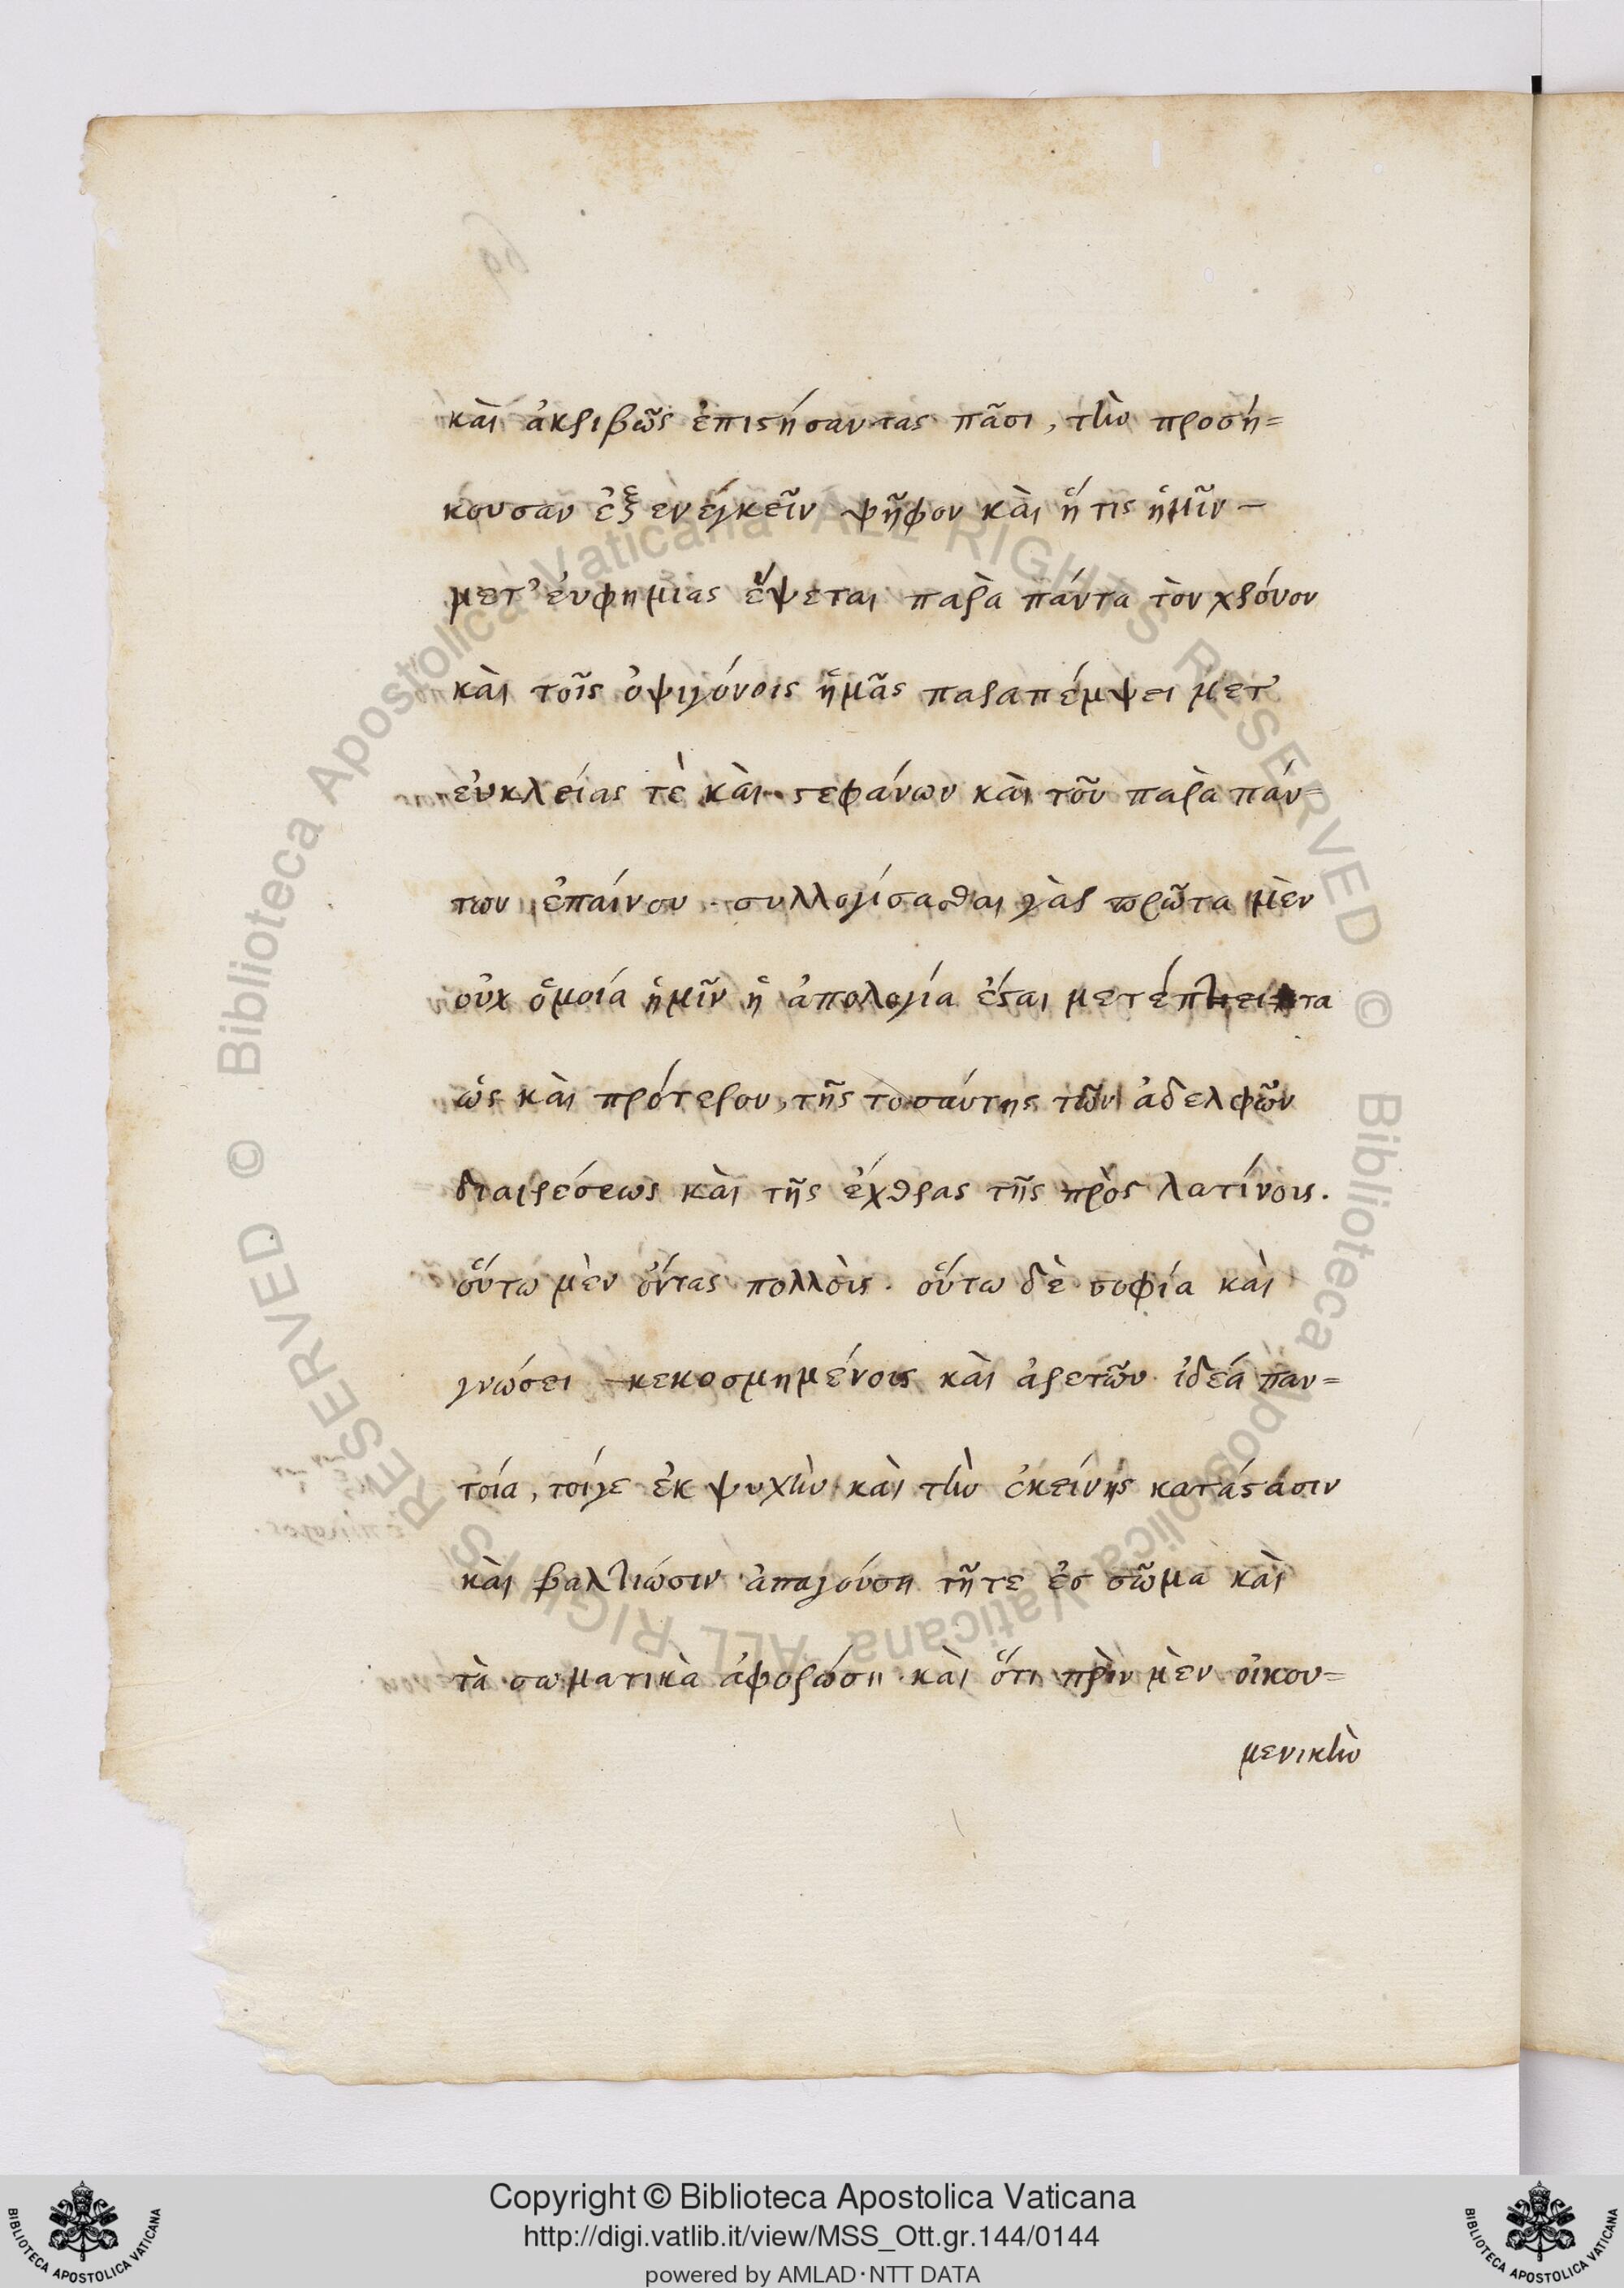 καὶ ἀκριβῶς ἐπιστήσαντας πᾶσι, τὴν προσή=
κουσαν ἐξενεγκεῖν ψῆφον καὶ ἥτις ἡμῖν –
μετ' ἐυφημίας ἕψεται παρὰ πάντα τὸν χρόνον
καὶ τοῖς ὀψιγόνοις ἡμᾶς παραπέμψει μετ'
εὐκλείας τὲ καὶ στεφάνων καὶ τοῦ παρὰ πάν=
των ἐπαίνου. συλλογίσασθαι γὰρ πρῶτα μὲν
οὐχ ὁμοία ἡμῖν ἡ ἀπολογία ἔσται
ὡς καὶ πρότερον, τῆς τοσαύτης τῶν ἀδελφῶν
διαιρέσεως καὶ τῆς ἔχθρας τῆς πρὸς λατίνοις.
οὕτω μὲν ὄντας πολλοὶς. οὕτω δὲ σοφία καὶ
γνώσει κεκοσμημένοις καὶ ἀρετῶν ἰδέα παν=
τοία, τοίγε ἐκ ψυχὴν καὶ τὴν ἐκείνης κατάστασιν
καὶ βαλτιώσιν ἀπαγούση τῆτε ἐσ σῶμα καὶ
τὰ σωματικὰ ἀφορώση καὶ ὅτι πρὶν μὲν οἰκου=
μενικὴν
Copyright © Biblioteca Apostolica Vaticana
http://digi.vatlib.it/view/MSS_Ott.gr.144/0144
powered by AMLAD·NTT DATA
BIBLIOTECA APOSTOLICA VATICANA
BIBLIOTECA APOSTOLICA VATICANA
© Biblioteca Apostolica Vaticana ALL RIGHTS RESERVED © Biblioteca Apostolica Vaticana ALL RIGHTS RESERVED